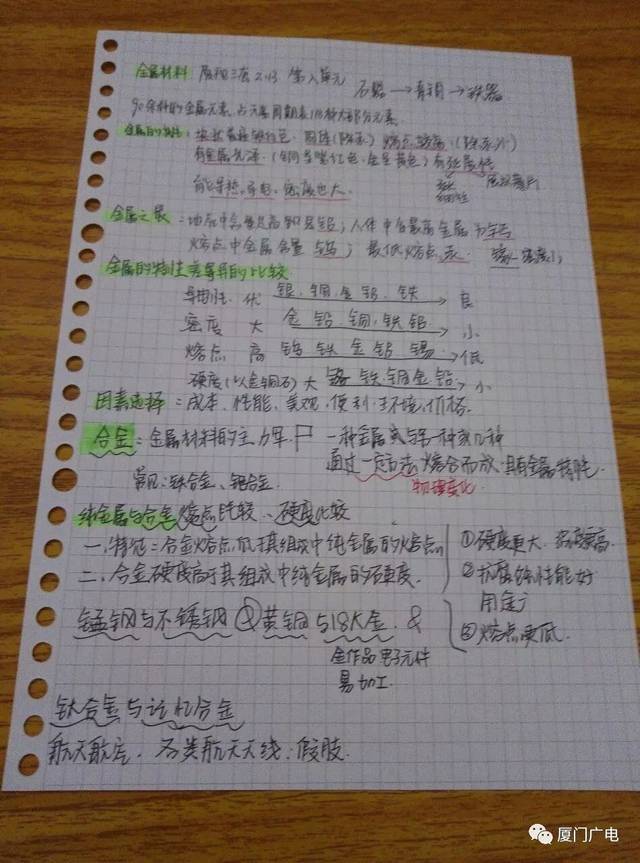 金属材料 第八单元 石器→青铜→铁器
90余种的金属元素,占元素周期表110种大部分元素.
金属的特性: 固体(除汞) 熔点较高 (除汞外)
有金属光泽.(铜呈紫红色.金呈黄色)有延展性
能导热,导电,密度也大.
金属之最:地壳中含量最高的是铝;人体中含量最高金属为钙
熔点 金属 钨; 最低熔点汞.
金属的特性差异的比较
导电性. 优 银.铜.金.铝.铁→良
密度 大 金铅铜.铁铝→小
熔点 高 钨铁金铝锡→低
硬度 大 铬铁铜金铅→小
因素选择:成本.性能.美观.便利.环境.价格.
合金:金属材料的主力军 一种金属或与另一种或几种
通过一定方法熔合而成.具有金属特性.
常见:铁合金、铝合金. 物理变化
纯金属与合金熔点比较、硬度比较
一.特征:合金熔点低于其组成中纯金属的熔点 ①硬度更大.强度更高.
二.合金硬度高于其组成中纯金属的硬度. ②抗腐蚀性能好
用途广
锰钢与不锈钢 黄铜与18K金. & ③熔点更低.
电子元件
易加工.
钛合金与记忆合金
航天航空.各类航天天线:假肢.
厦门广电